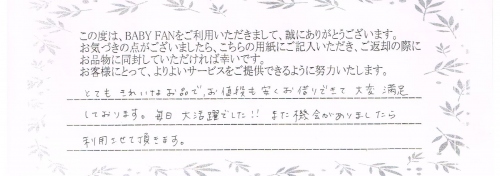 この度は、BABY FANをご利用いただきまして、誠にありがとうございます。
お気づきの点がございましたら、こちらの用紙にご記入いただき、ご返却の際に
お品物に同封していただければ幸いです。
お客様にとって、よりよいサービスをご提供できるように努力いたします。
とても きれいなお品で、お値段も 安くお借りできて 大変 満足
しております。毎日 大活躍でした!! また機会がありましたら
利用させて頂きます。